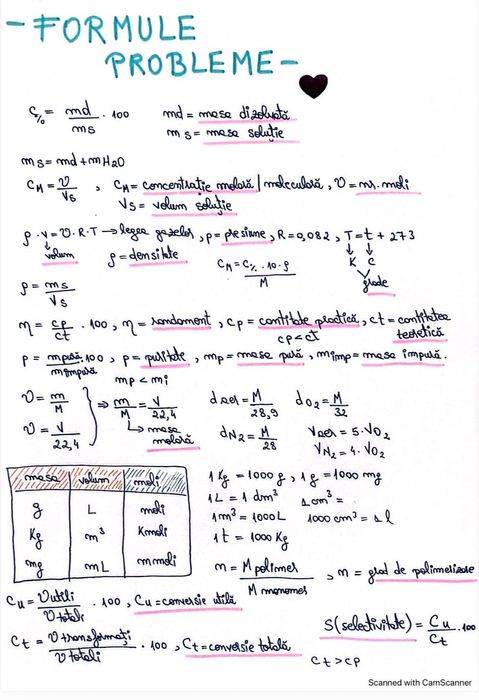 -FORMULE
PROBLEME-
C% = md/ms · 100 md = masa dizolvată
ms = masa soluție
ms = md + mH2O
CM = υ/Vs , CM = concentrație molară/moleculară, υ = nr. moli
Vs = volum soluție
p · v = υ · R · T → legea gazelor, p = presiune, R = 0,082 , T = t + 273
volum ρ = densitate CM = C% · 10 · ρ/M K C
grade
ρ = ms/Vs
η = cp/ct · 100, η = randament , cp = cantitate practică, ct = cantitatea teoretică
cp < ct
p = mpură/mimpură · 100 , p = puritate, mp = masa pură, mimp = masa impură.
mp < mi
υ = m/M
υ = V/22,4
⇒ m/M = V/22,4
→ masa molară
daer = M/28,9 dO2 = M/32
dN2 = M/28 Vaer = 5 · VO2
VN2 = 4 · VO2
masa volum moli
g L moli
Kg m³ Kmoli
mg mL mmoli
1 Kg = 1000 g , 1 g = 1000 mg
1 L = 1 dm³ 1 cm³ =
1 m³ = 1000 L 1000 cm³ = 1 l
1 t = 1000 Kg
n = M polimer/M monomer , n = grad de polimerizare
Cu = υ utili/υ totali · 100 , Cu = conversie utilă
Ct = υ transformați/υ totali · 100 , Ct = conversie totală
S(selectivitate) = Cu/Ct · 100
Ct > cp
Scanned with CamScanner